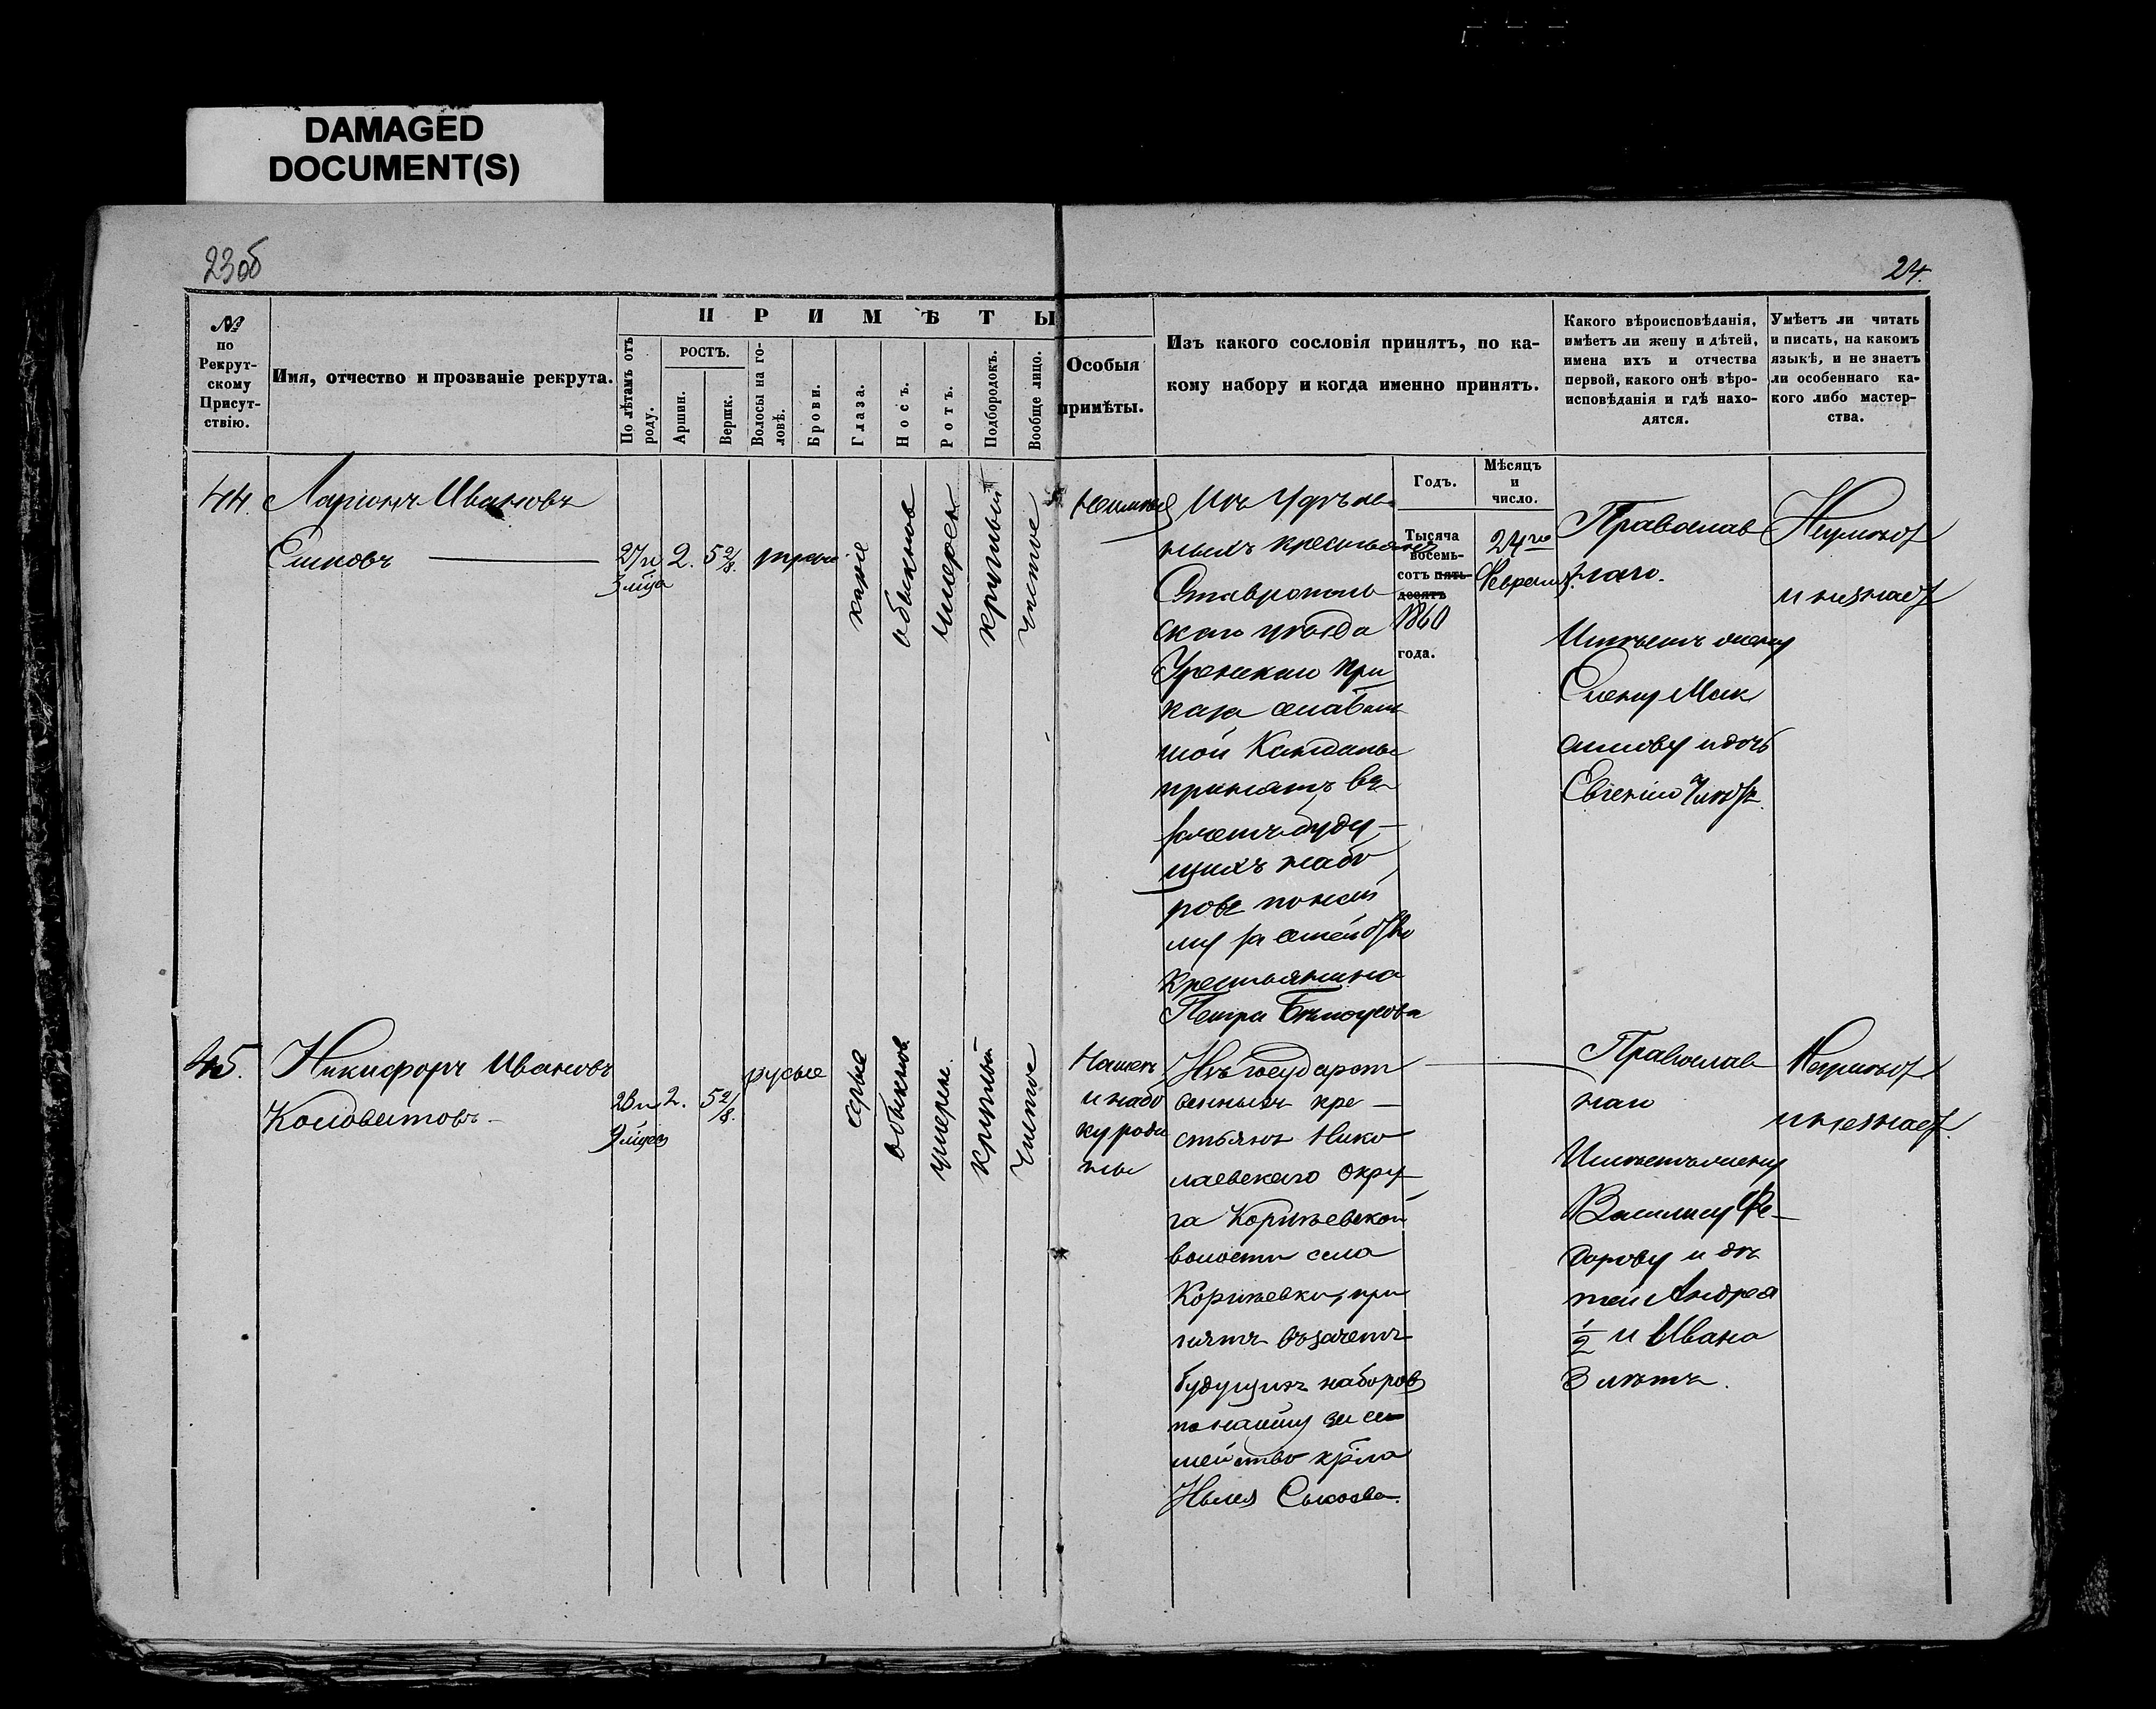 DAMAGED
DOCUMENT(S)
23об
24.
№
по
Рекрут-
скому
Присут-
ствію.
Имя, отчество и прозваніе рекрута.
ПРИМѢТЫ
По лѣтамъ отъ
роду.
РОСТЪ.
Аршин.
Вершк.
Волосы на го-
ловѣ.
Брови.
Глаза.
Носъ.
Ротъ.
Подбородокъ.
Вообще лицо.
Особыя
примѣты.
Изъ какого сословія принятъ, по ка-
кому набору и когда именно принятъ.
Какого вѣроисповѣданія,
имѣетъ ли жену и дѣтей,
имена ихъ и отчества
первой, какого онѣ вѣро-
исповѣданія и гдѣ нахо-
дятся.
Умѣетъ ли читать
и писать, на какомъ
языкѣ, и не знаетъ
ли особеннаго ка-
кого либо мастер-
ства.
Годъ.
Мѣсяцъ
и
число.
44.
Ларіонъ Ивановъ
27 и
3 мѣца
2.
5 2/8.
русые
каріе
обыкнов
умерен
круглый
чистое
Изъ Удѣль
ныхъ крестьянъ
Ставрополь
скаго уѣзда
приказа
принятъ въ
зачетъ буду-
щихъ набо
ровъ по най
му за семейство
крестьянина
Петра
Тысяча
восемь-
сотъ пять-
десятъ
1860
года.
24го
Февраля
Православ
наго.
Имѣетъ жену
Елену Мак
симову и дочь
Евгенію
Неумѣет
и незнает
45.
Никифоръ Ивановъ
Коловатовъ
2.
5 2/8.
русые
серые
обыкнов.
умерен.
круглый
чистое
Изъ государст
венныхъ кре-
стьянъ Нико
лаевскаго окру-
га Корнѣевской
волости села
Корнѣевки, при
нятъ въ зачетъ
будущихъ наборов
по найму за се
мейство крѣна
Православ
наго
Имѣетъ жену
Василису Фе-
дорову и дѣ
тей Андрея
1/2 и Ивана
3 лѣтъ.
Неумѣет
и незнает.